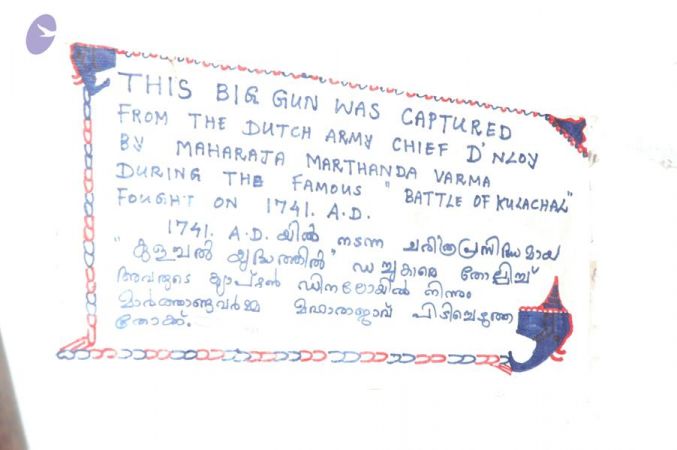 THIS BIG GUN WAS CAPTURED
FROM THE DUTCH ARMY CHIEF D'NLOY
BY MAHARAJA MARTHANDA VARMA
DURING THE FAMOUS "BATTLE OF KULACHAL"
FOUGHT ON 1741. A.D.
1741. A.D. യിൽ നടന്ന ചരിത്രപ്രസിദ്ധമായ
"കുളച്ചൽ യുദ്ധത്തിൽ" ഡച്ചുകാരെ തോല്പിച്ച്
അവരുടെ ക്യാപ്ടൻ ഡിനലോയിൽ നിന്നും
മാർത്താണ്ഡവർമ്മ മഹാരാജാവ് പിടിച്ചെടുത്ത
തോക്ക്.